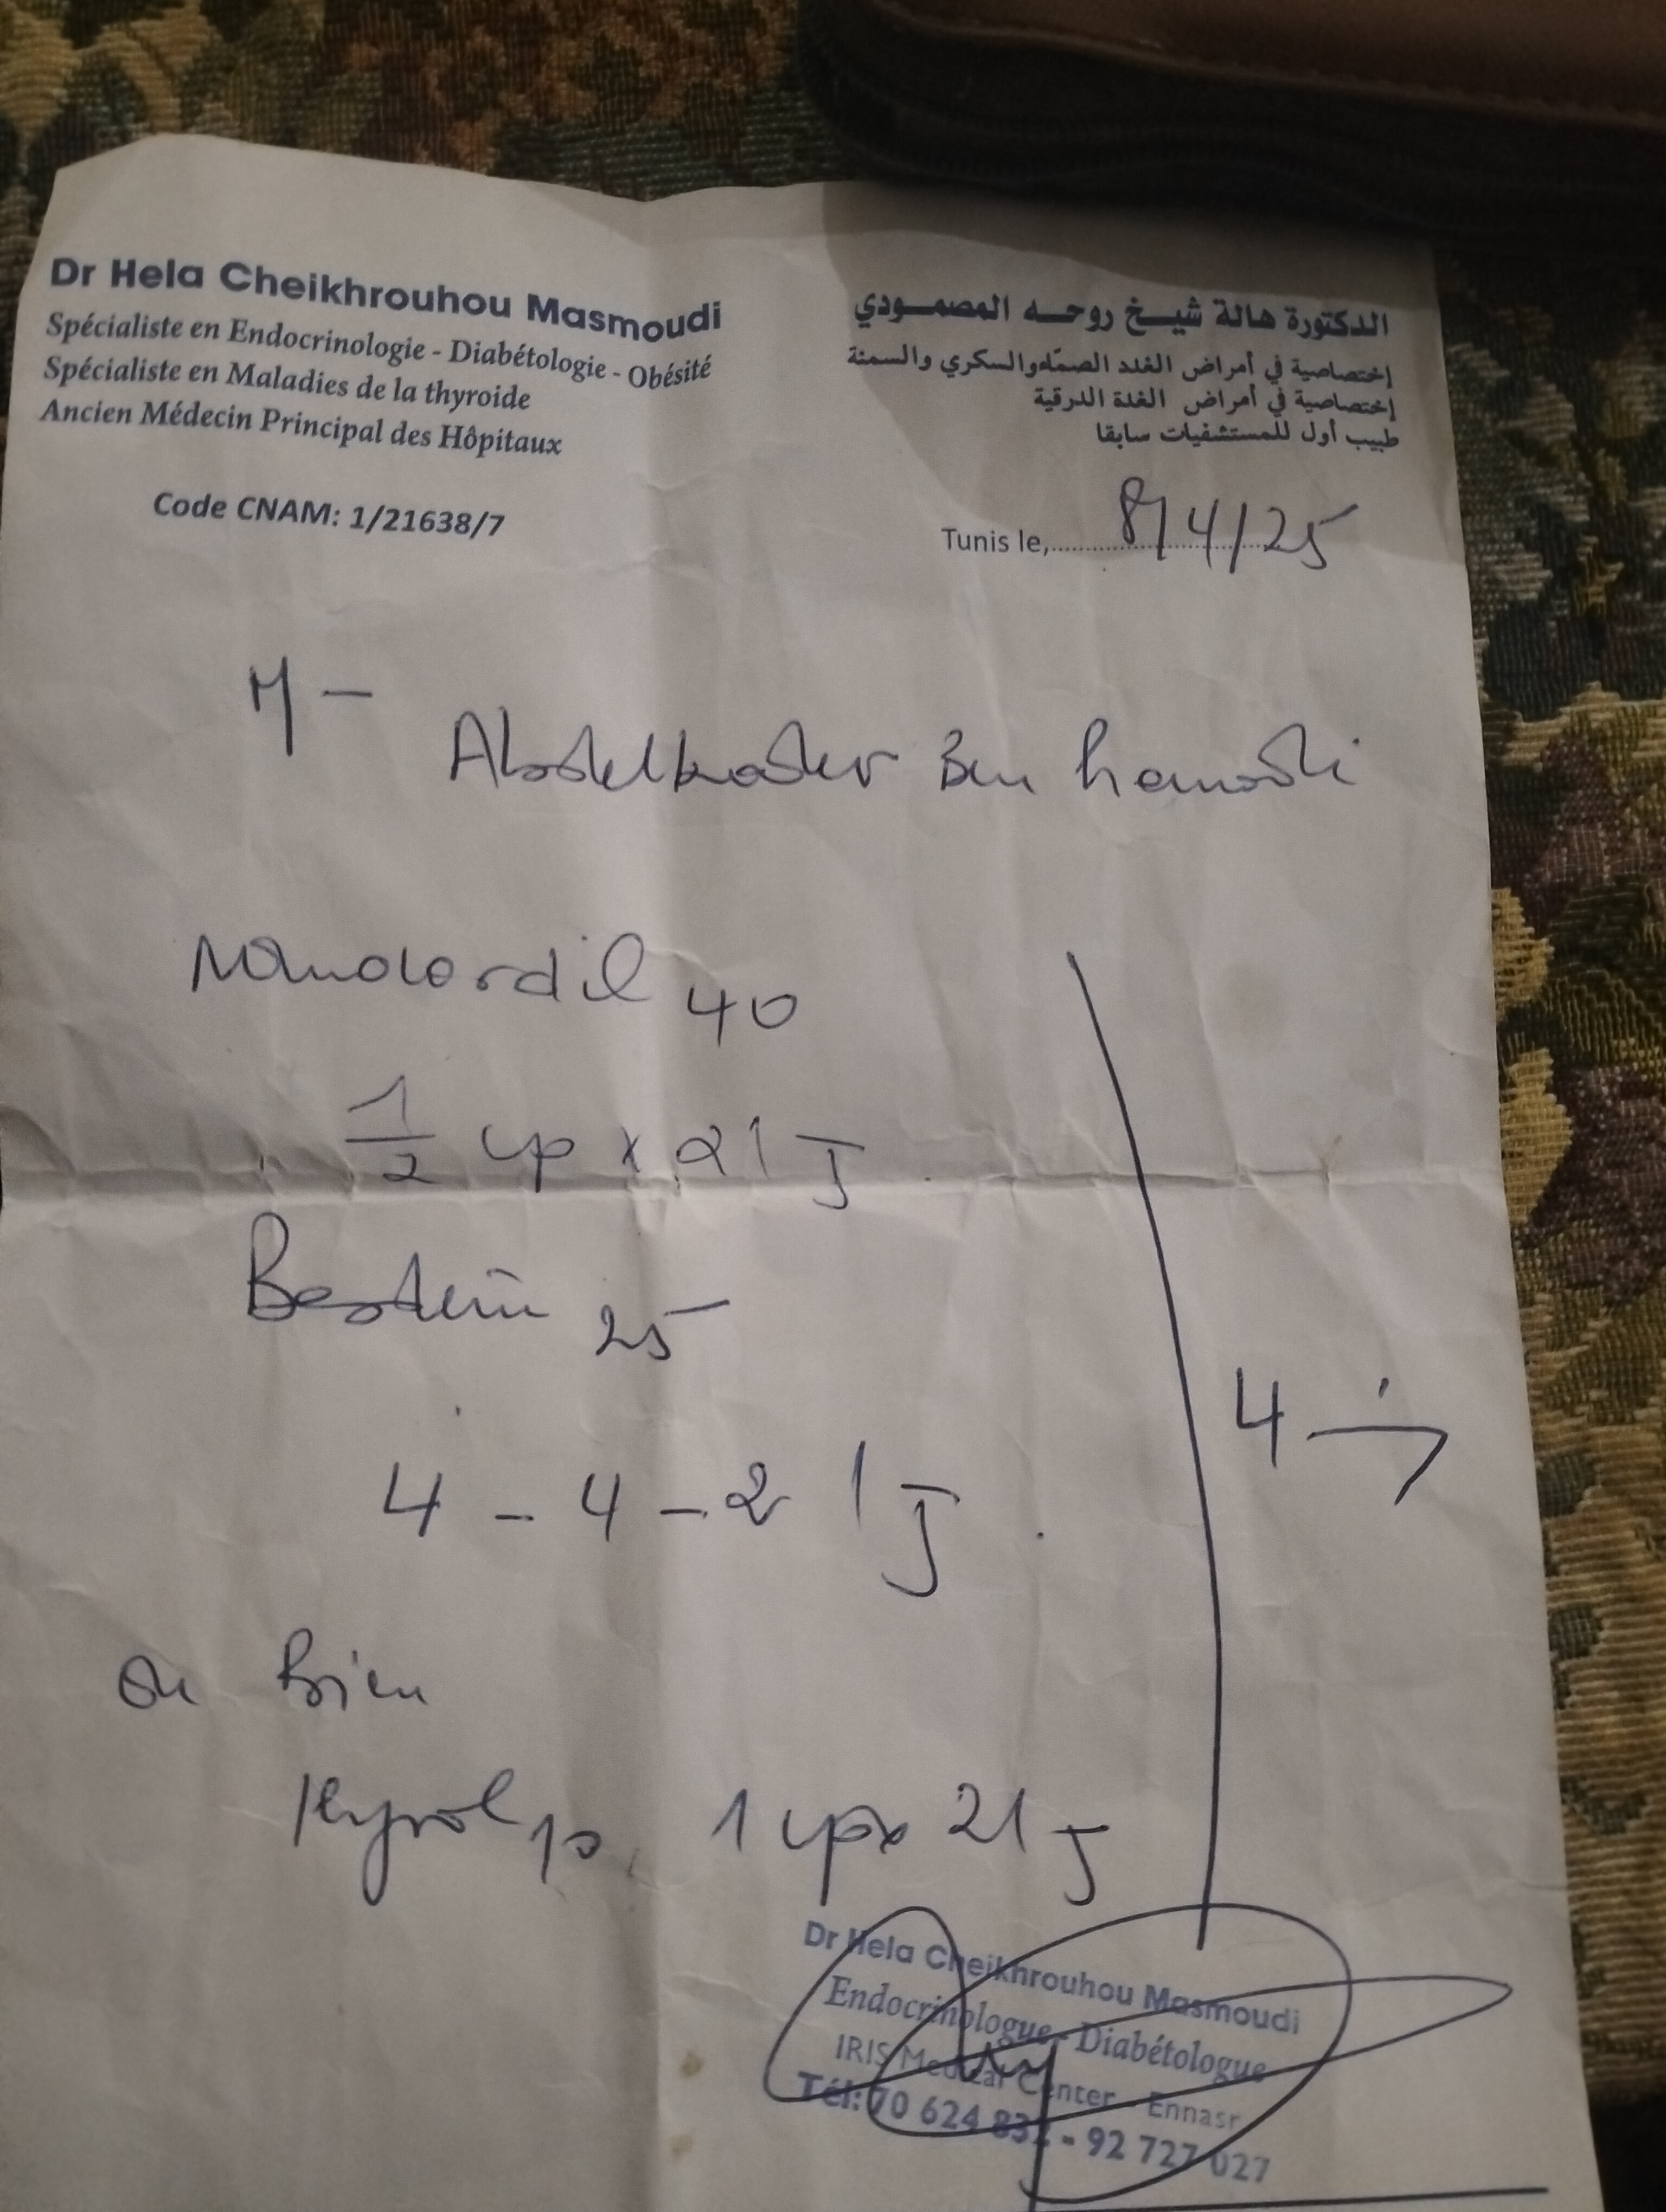 Dr Hela Cheikhrouhou Masmoudi
Spécialiste en Endocrinologie - Diabétologie - Obésité
Spécialiste en Maladies de la thyroide
Ancien Médecin Principal des Hôpitaux
Code CNAM: 1/21638/7
الدكتورة هالة شيخ روحه المصمودي
إختصاصية في أمراض الغدد الصمّاء والسكري والسمنة
إختصاصية في أمراض الغدة الدرقية
طبيب أول للمستشفيات سابقا
Tunis le, 8/4/25
M
Abdelkader Ben
40
1/2 cp x 2 / J
25
4 - 4 - 2 / J
4
ou bien
1 cp x 2 / J
Dr Hela Cheikhrouhou Masmoudi
Endocrinologue - Diabétologue
IRIS Medical Center - Ennasr
Tél: 70 624 832 - 92 727 027